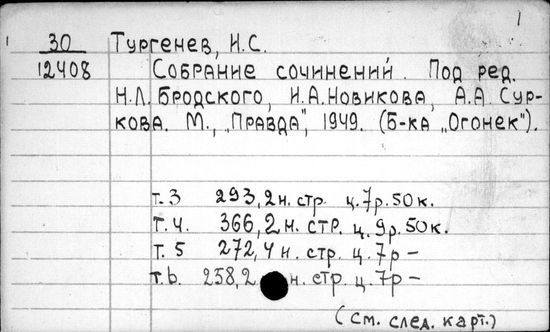 1
30 Тургенев, И.С.
12408 Собрание сочинений. Под ред.
Н.Л. Бродского, И.А. Новикова, А.А. Сур-
кова. М., „Правда", 1949. (Б-ка „Огонек").
т. 3 293, 2 н. стр. ц. 7 р. 50 к.
т. 4. 366, 2 н. стр. ц. 9 р. 50 к.
т. 5 272, 4 н. стр. ц. 7 р –
т. 6. 258, 2 н. стр. ц. 7 р –
(см. след. карт.)